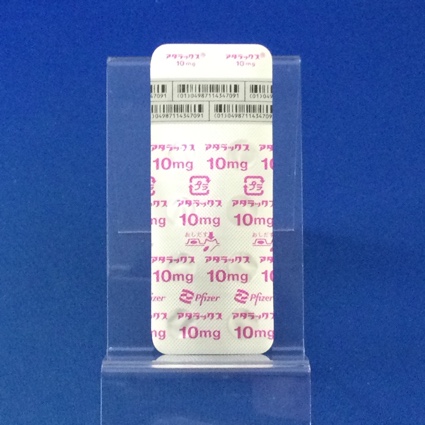 アタラックス® アタラックス®
10mg 10mg
(01)04987114347091
(01)04987114347091 (01)04987114347091
アタラックス アタラックス
10mg 10mg
プラ プラ
アタラックス アタラックス
10mg 10mg
おしだす おしだす
アタラックス アタラックス
10mg 10mg
Pfizer Pfizer
アタラックス アタラックス
10mg 10mg